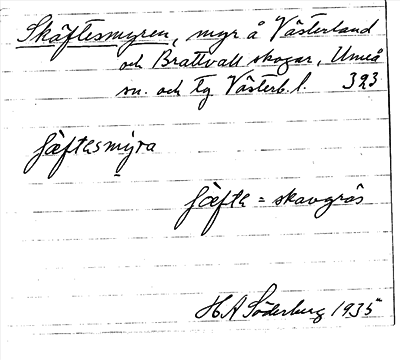 Skäftesmyren, myr å Västerland
och Brattvall skogar, Umeå
sn. och tg Västerb. l. 393
ʃæftesmyra
ʃæfte = skavgräs
H A Söderberg 1935